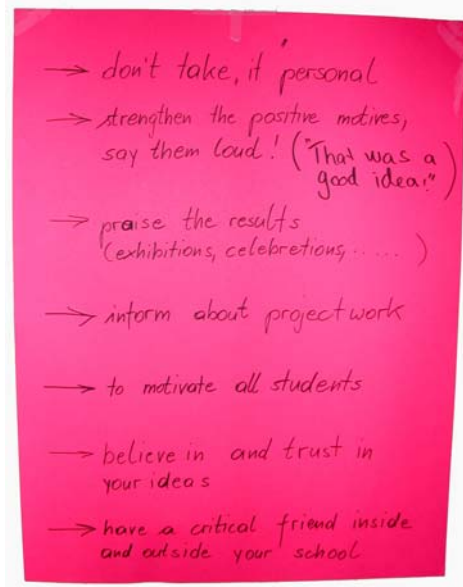 → don't take, it personal
→ strengthen the positive motives,
say them loud! ("That was a
good idea!")
→ praise the results
(exhibitions, celebretions, .....)
→ inform about projectwork
→ to motivate all students
→ believe in and trust in
your ideas
→ have a critical friend inside
and outside your school